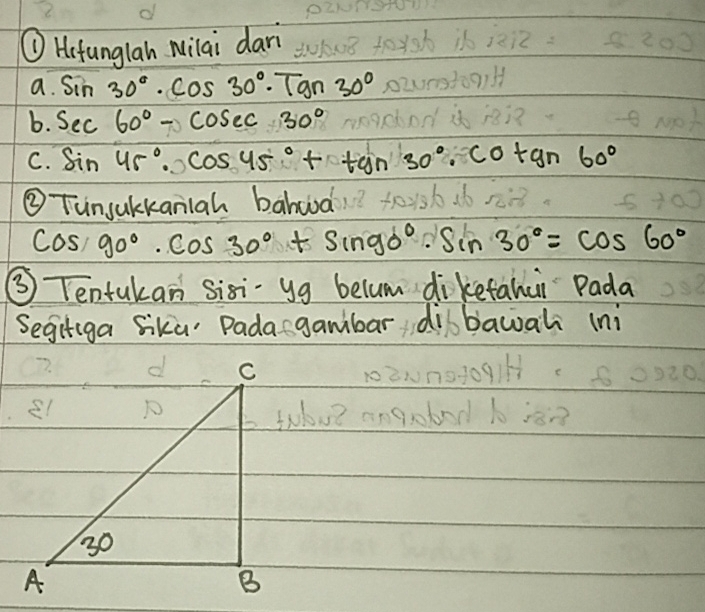 ① Hitunglah Nilai dari
a. Sin 30°. Cos 30°. Tan 30°
b. Sec 60° - Cosec 30°
C. Sin 45°. Cos 45° + tan 30°. Cotan 60°
② Tunjukkanlah bahwa
Cos 90°. Cos 30° + Sin 90°. Sin 30° = Cos 60°
③ Tentukan Sisi- yg belum diketahui Pada
Segitiga Siku. Pada gambar di bawah ini
C
30
A B